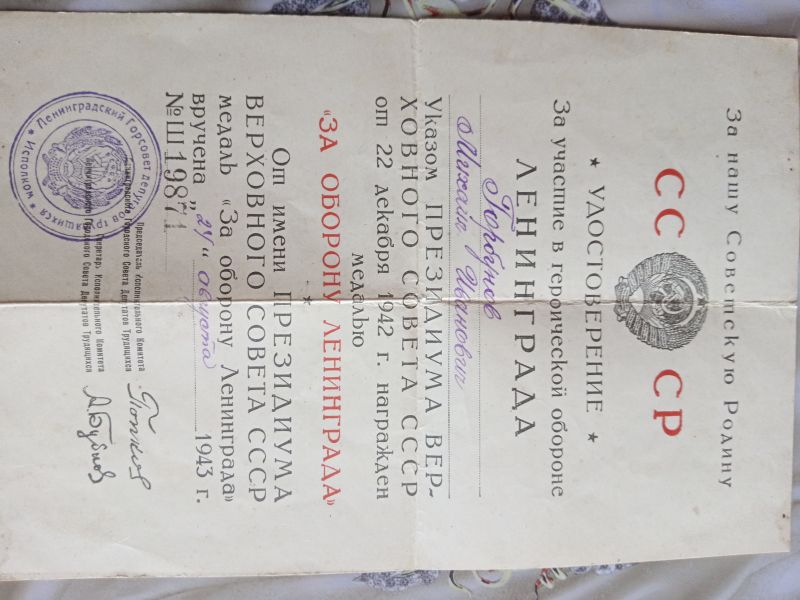 За нашу Советскую Родину
СС СР
★ УДОСТОВЕРЕНИЕ ★
За участие в героической обороне
ЛЕНИНГРАДА
Горбунов
Михаил Иванович
Указом ПРЕЗИДИУМА ВЕР-
ХОВНОГО СОВЕТА СССР
от 22 декабря 1942 г. награжден
медалью
«ЗА ОБОРОНУ ЛЕНИНГРАДА»
От имени ПРЕЗИДИУМА
ВЕРХОВНОГО СОВЕТА СССР
медаль «За оборону Ленинграда»
вручена „24“ августа 1943 г.
№Ш19871
Председатель Исполнительного Комитета
Ленинградского Городского Совета Депутатов Трудящихся
Попков
Секретарь Исполнительного Комитета
Ленинградского Городского Совета Депутатов Трудящихся
А. Бубнов
Ленинградский Горсовет депутатов трудящихся ★ Исполком ★